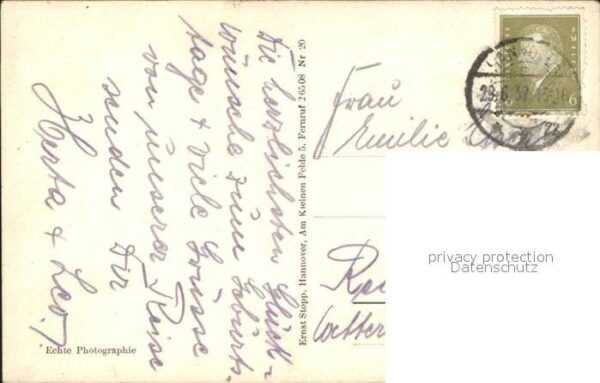 Die herzlichsten Glück-
wünsche zum Geburts-
tage & viele Grüsse
von unserer Reise
senden Dir
Herta & Leo.
Echte Photographie
Ernst Stopp, Hannover, Am Kleinen Felde 5. Fernruf 26508 Nr 20
Frau
Emilie
6 6
privacy protection
Datenschutz